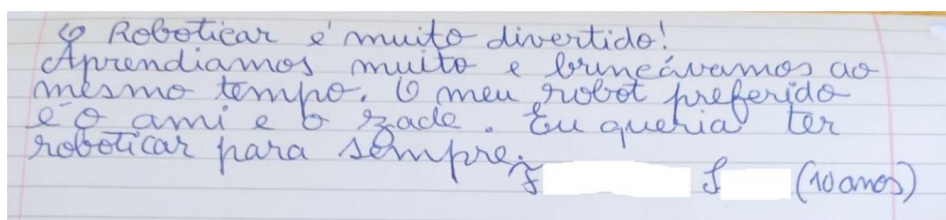 O Roboticar é muito divertido!
Aprendiamos muito e brincávamos ao
mesmo tempo. O meu robot preferido
é o ami e o zade. Eu queria ter
roboticar para sempre.
(10 anos)